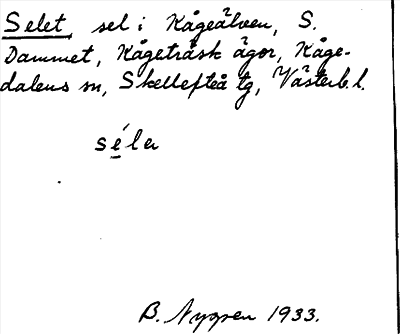 Selet, sel i Kågeälven, S.
Dammet, Kågeträsk ägor, Kåge-
dalens sn, Skellefteå tg, Västerb. l.
séler
B. Nygren 1933.